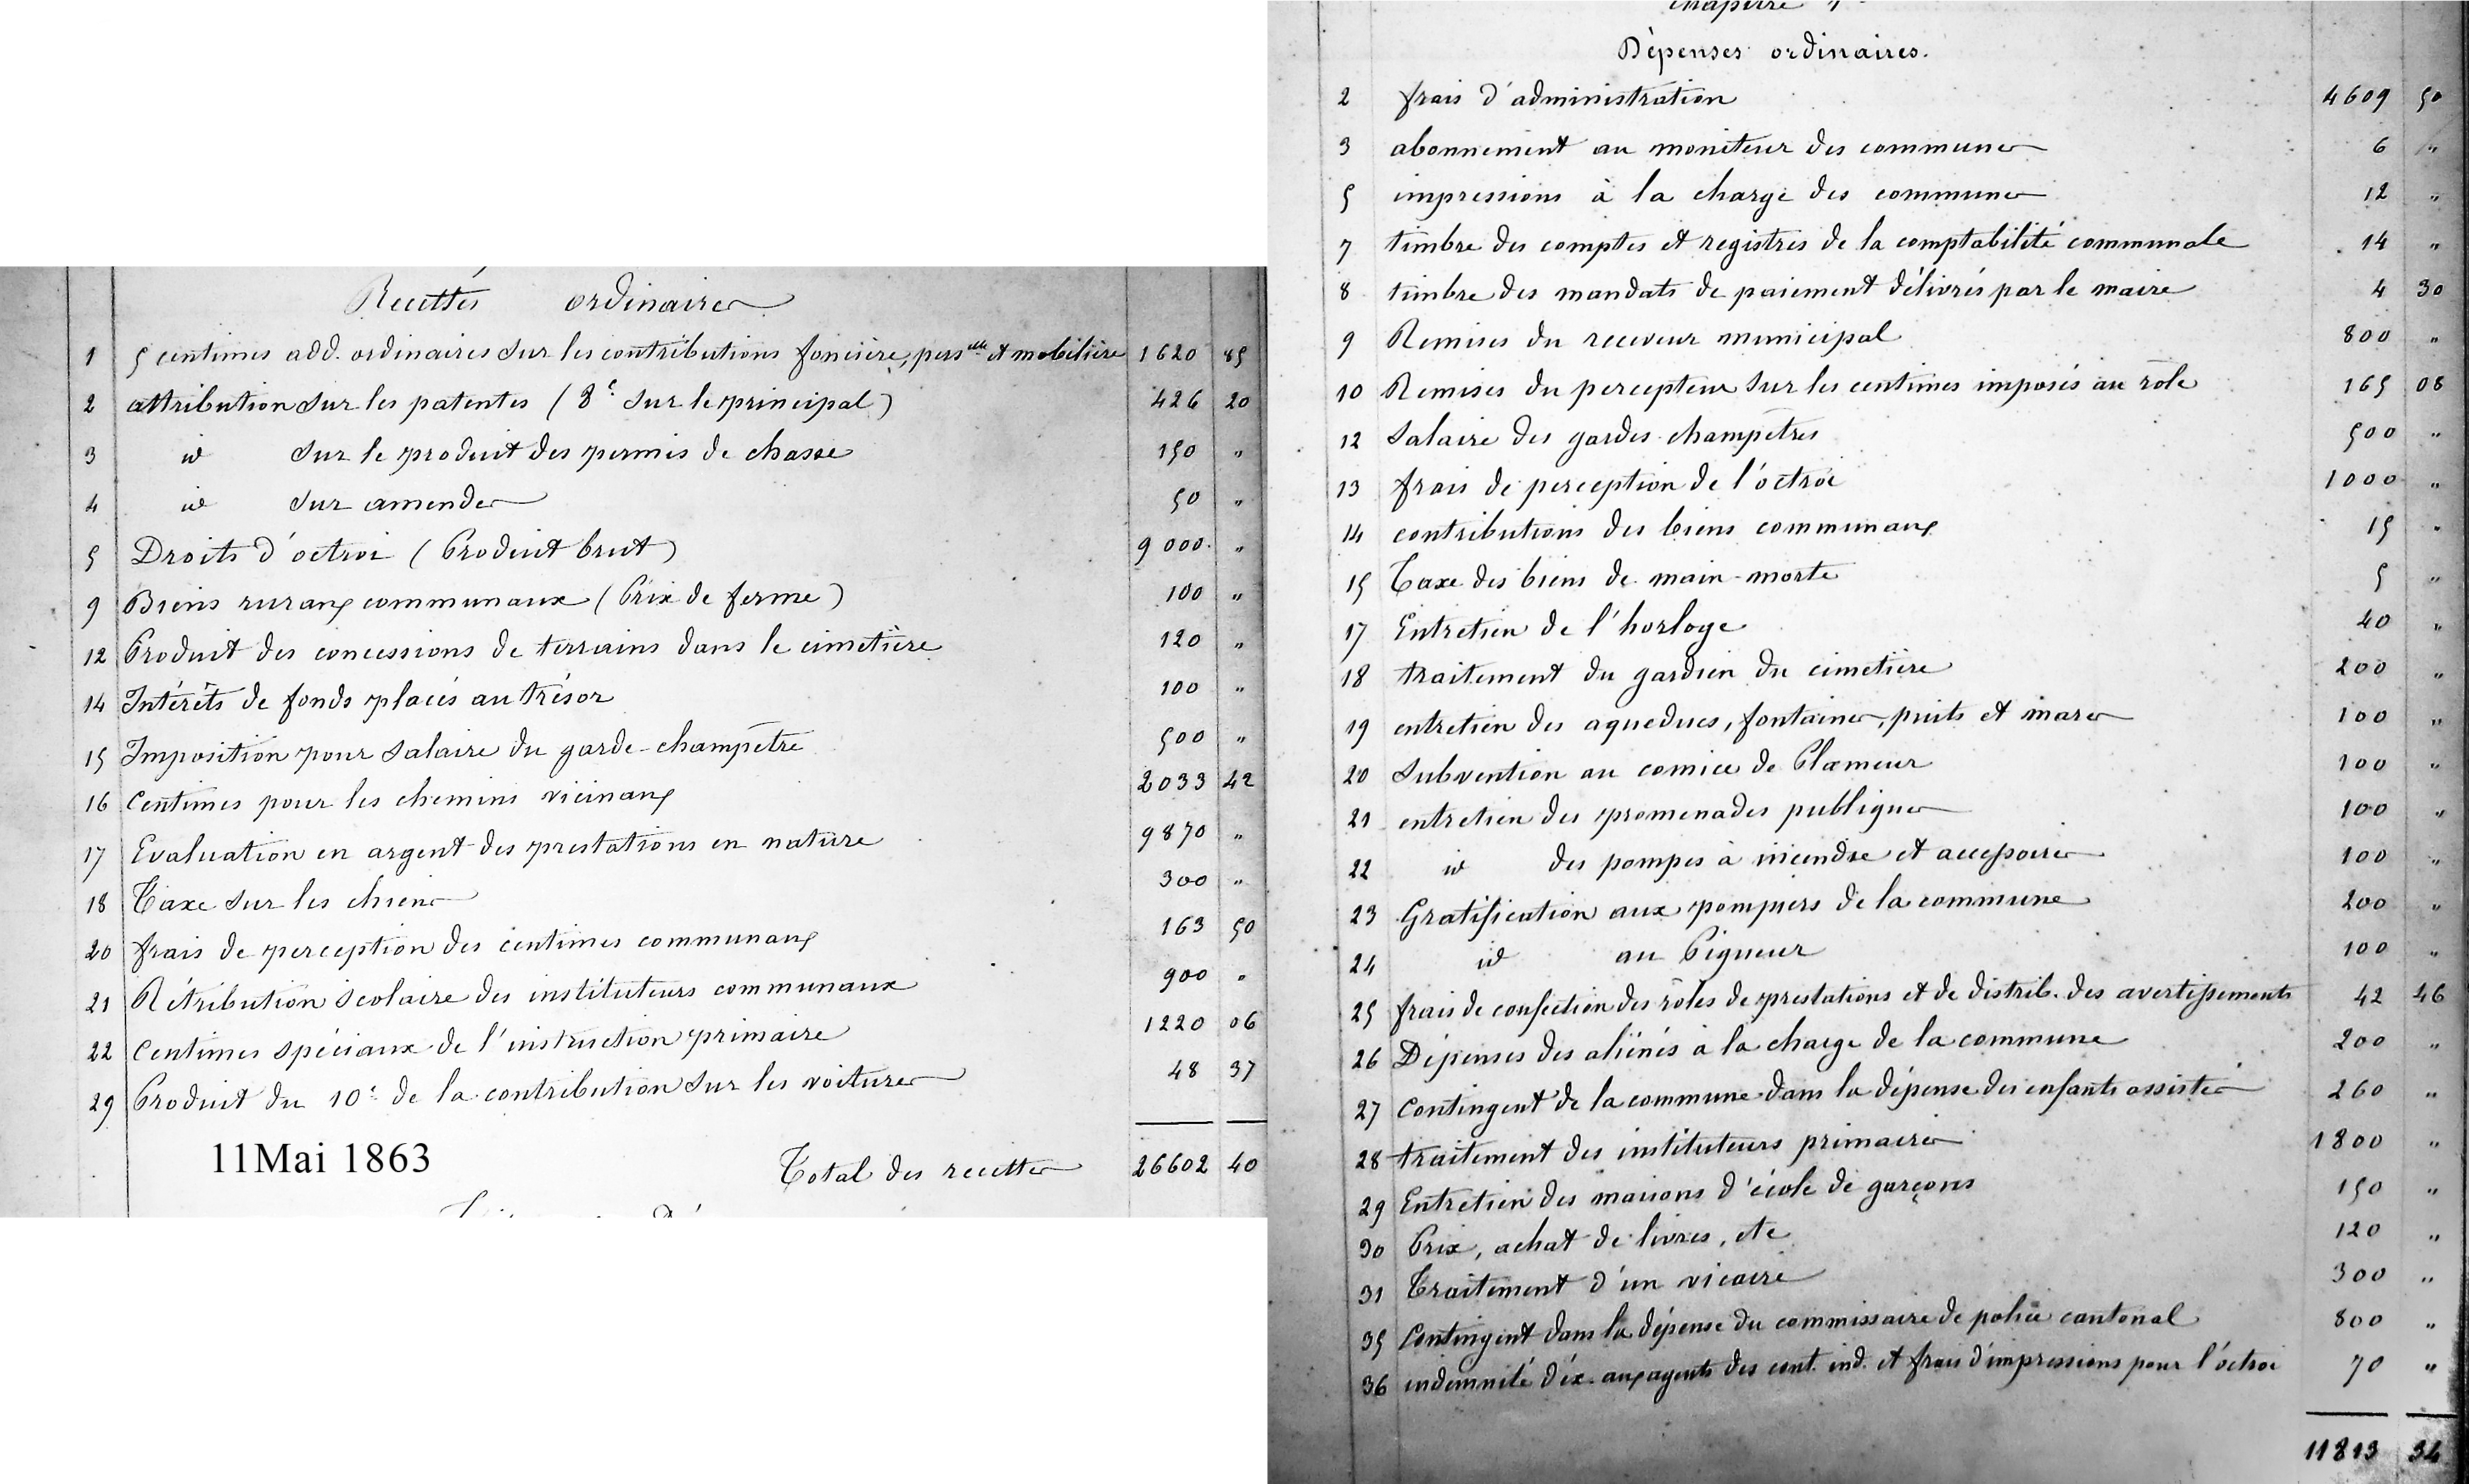 Recettes ordinaires
1 5 centimes add. ordinaires sur les contributions foncière, pers.elle et mobilière 1620 85
2 attribution sur les patentes (8c sur le principal) 426 20
3 id sur le produit des permis de chasse 150 "
4 id sur amendes 50 "
5 Droits d'octroi (Produit brut) 9000 "
9 Biens ruraux communaux (Prix de ferme) 100 "
12 Produit des concessions de terrains dans le cimetière 120 "
14 Intérêts de fonds placés au trésor 100 "
15 Imposition pour salaire du garde-champêtre 500 "
16 Centimes pour les chemins vicinaux 2033 42
17 Evaluation en argent des prestations en nature 9870 "
18 Taxe sur les chiens 300 "
20 frais de perception des centimes communaux 163 50
21 Rétribution scolaire des instituteurs communaux 900 "
22 Centimes spéciaux de l'instruction primaire 1220 06
29 Produit du 10e de la contribution sur les voitures 48 37
11Mai 1863
Total des recettes 26602 40
Chapitre 1
Dépenses ordinaires.
2 frais d'administration 4609 50
3 abonnement au moniteur des communes 6 "
5 impressions à la charge des communes 12 "
7 timbre des comptes et registres de la comptabilité communale 14 "
8 timbre des mandats de paiement délivrés par le maire 4 30
9 Remises du receveur municipal 800 "
10 Remises du percepteur sur les centimes imposés au rôle 165 08
12 Salaire des gardes champêtres 500 "
13 frais de perception de l'octroi 1000 "
14 contributions des biens communaux 15 "
15 Taxe des biens de main-morte 5 "
17 Entretien de l'horloge 40 "
18 traitement du gardien du cimetière 200 "
19 entretien des aqueducs, fontaines, puits et mares 100 "
20 Subvention au comice de Plœmeur 100 "
21 entretien des promenades publiques 100 "
22 id des pompes à incendie et accessoires 100 "
23 Gratification aux pompiers de la commune 200 "
24 id au Piqueur 100 "
25 frais de confection des rôles de prestations et de distrib. des avertissements 42 46
26 Dépenses des aliénés à la charge de la commune 200 "
27 Contingent de la commune dans la dépense des enfants assistés 260 "
28 traitement des instituteurs primaires 1800 "
29 Entretien des maisons d'école de garçons 150 "
30 Prix, achat de livres, etc 120 "
31 Traitement d'un vicaire 300 "
35 Contingent dans la dépense du commissaire de police cantonal 800 "
36 indemnité d'ex. aux agents des cont. ind. et frais d'impressions pour l'octroi 70 "
11813 34